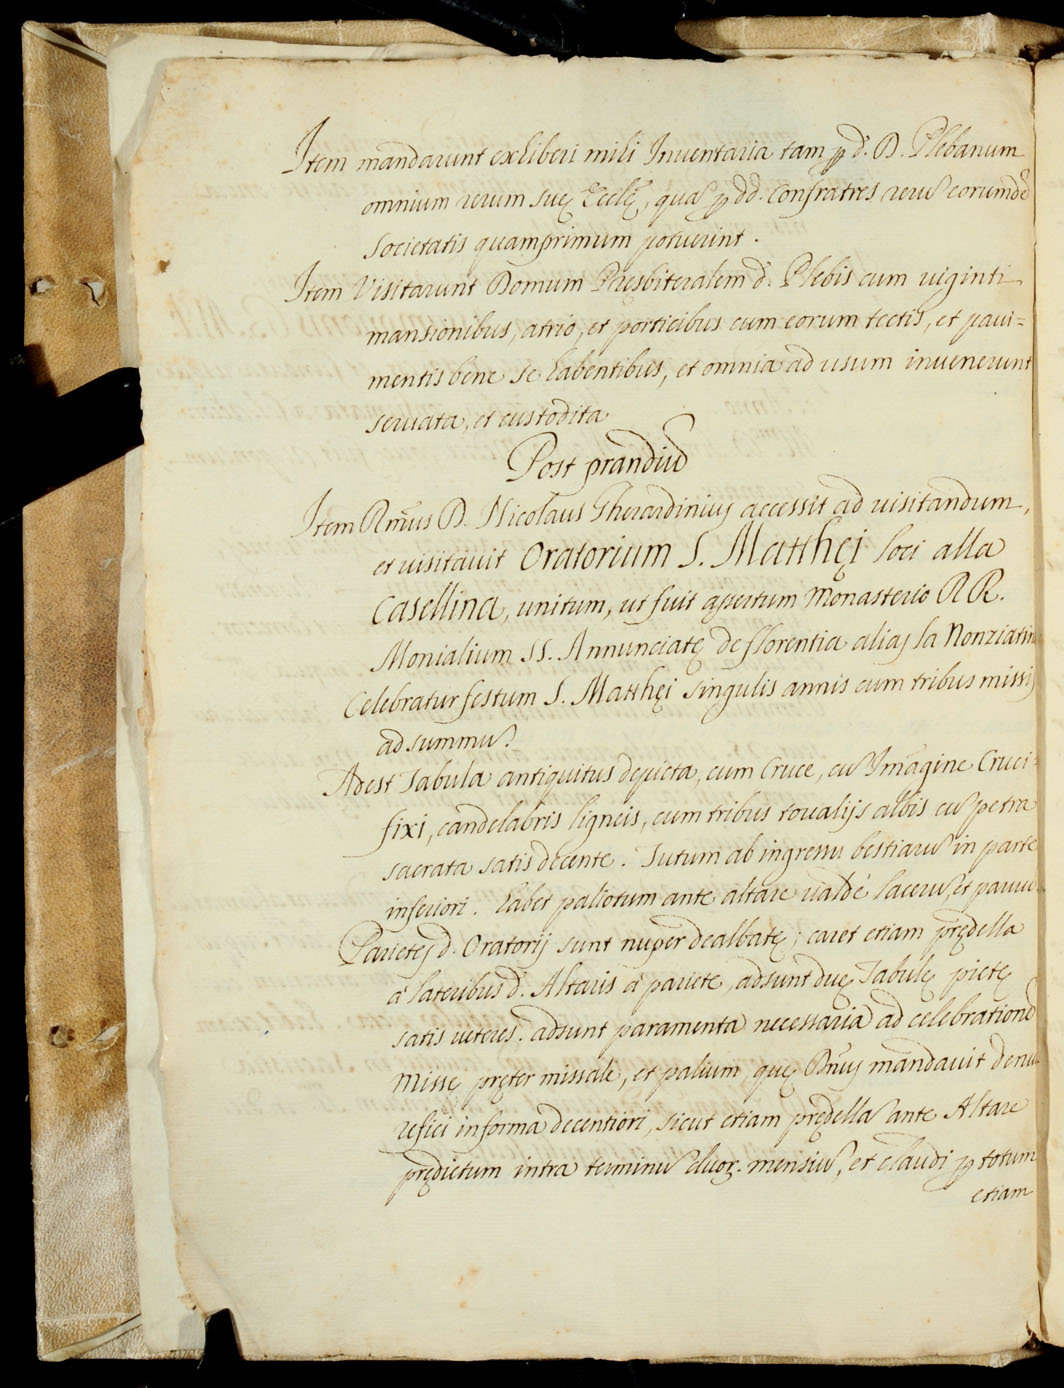 Item mandarunt exhiberi mihi Inventaria tam ꝑ d. D. Plebanum
omnium rerum suę Ecclę, quā ꝑ dd. Confratres rerū eorumdē
Societatis quamprimum potuerint.
Item Visitarunt Domum Pręsbiteralem d. Plebis cum viginti
mansionibus, atrio, et porticibus cum eorum tectis, et paui=
mentis bene se habentibus, et omnia ad usum invenerunt
seruata, et custodita
Post prandiū
Item Rmus D. Nicolaus Gherardinius accessit ad visitandum,
et visitauit Oratorium S. Matthęi loci alla
Casellina, unitum, ut fuit assertum Monasterio RR.
Monialium SS. Annunciatę de Florentia alias la Nonziatina
Celebratur festum S. Matthęi singulis annis cum tribus missis
ad summū.
Adest Tabula antiquitus depicta, cum Cruce, cū Imagine Cruci=
fixi, candelabris ligneis, cum tribus toualijs albis cū petra
sacrata satis decente. Tutum ab ingressu bestiarū in parte
inferiori. habet paliotum ante altare valdè lacerū, et parvū
Parietes d. Oratorij sunt nuper dealbatę; caret etiam prędella
à lateribus d. Altaris à pariete, adsunt duę Tabulę pictę
satis veteres. adsunt paramenta necessaria ad celebrationē
Missę pręter missale, et palium, quę Dnus mandauit denuo
refici in forma decentiori, sicut etiam prędellā ante Altare
prędictum intra terminū duoꝝ. mensiū, et claudi ꝑ totum
etiam